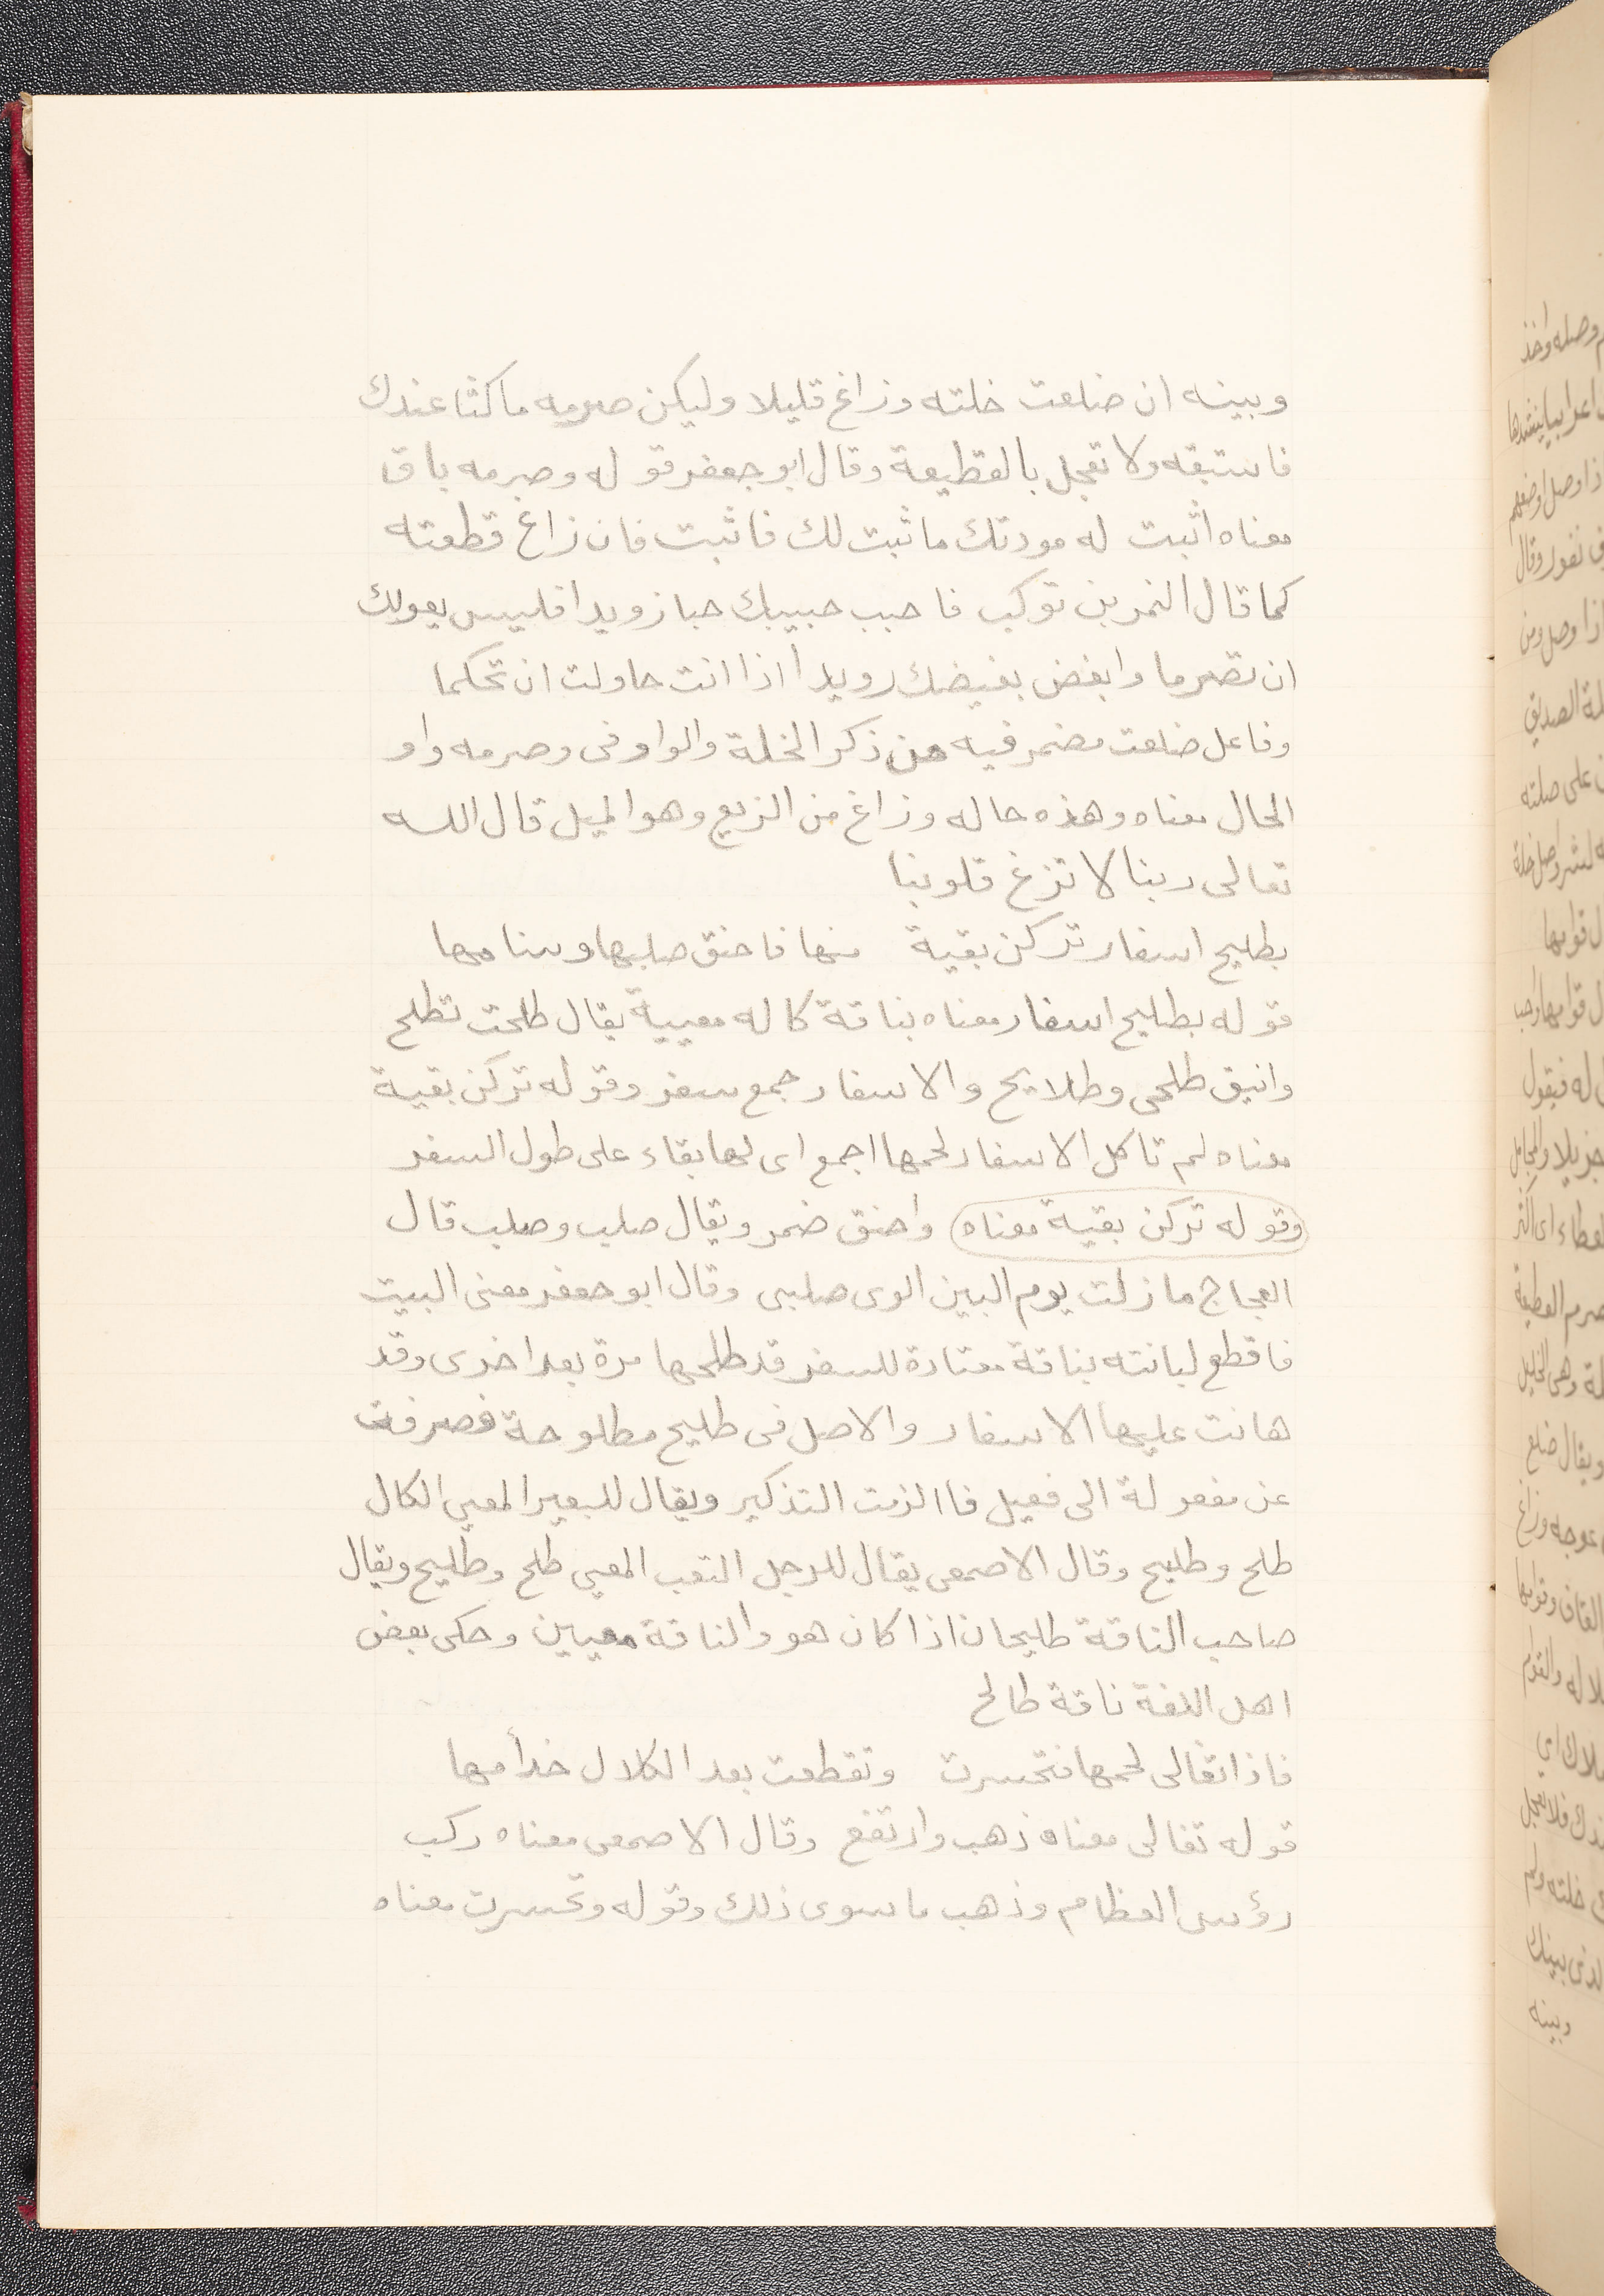 وبينه ان ضلعت خلته وزاغ قليلا وليكن صرمه ماكثا عندك
فاستبقه ولا تعجل بالقطيعة وقال ابو جعفر قو له وصرمه باق
معناه اثبت له مودتك ما ثبت لك فاثبت فان زاغ قطعته
كما قال النمر بن تو كب فاحبب حبيبك حبا زويدا فليس يعولك
ان تصرما وابغض بغيضك رويدا اذا انت حاولت ان تحكما
وفاعل ضلعت مضمر فيه من ذكر الخلة والواو فى وصرمه واو
الحال معناه وهذه حاله وزاغ من الزيع وهو الميل قال الله
تعالى ربنا لا تزغ قلوبنا
بطليح اسفار تركن بقية منها فاحنق صلبها وسنامها
قوله بطليح اسفار معناه بناقة كاله معيية يقال طلحت تطلح
وانيق طلحى وطلايح والاسفار جمع سفر وقوله تركن بقية
معناه لم تاكل الاسفار لحمها اجمع اى لها بقاء على طول السفر
وقوله تركن بقية معناه واحنق ضمر ويقال صلب وصلب قال
العجاج ما زلت يوم البين الوى صلبى وقال ابو جعفر معنى البيت
فاقطع لبانته بناقة معتادة للسفر قد طلحها مرة بعد اخرى وقد
هانت عليها الاسفار والاصل فى طليح مطلوحة فصرفت
عن مفعولة الى فعيل فاالزمت التذكير ويقال للبعير المعيى الكال
طلح وطليح وقال الاصمعى يقال للرجل التعب المعيى طلح وطليح ويقال
صاحب الناقة طليحان اذا كان هو والناقة معيين وحكى بعض
اهل اللغة ناقة طالح
فاذا تغالى لحمها فتحسرت وتقطعت بعد الكلال خدأمها
قوله تغالى معناه ذهب وارتفع وقال الاصمعى معناه ركب
رؤس العظام وذهب ما سوى ذلك وقوله وتحسرت معناه